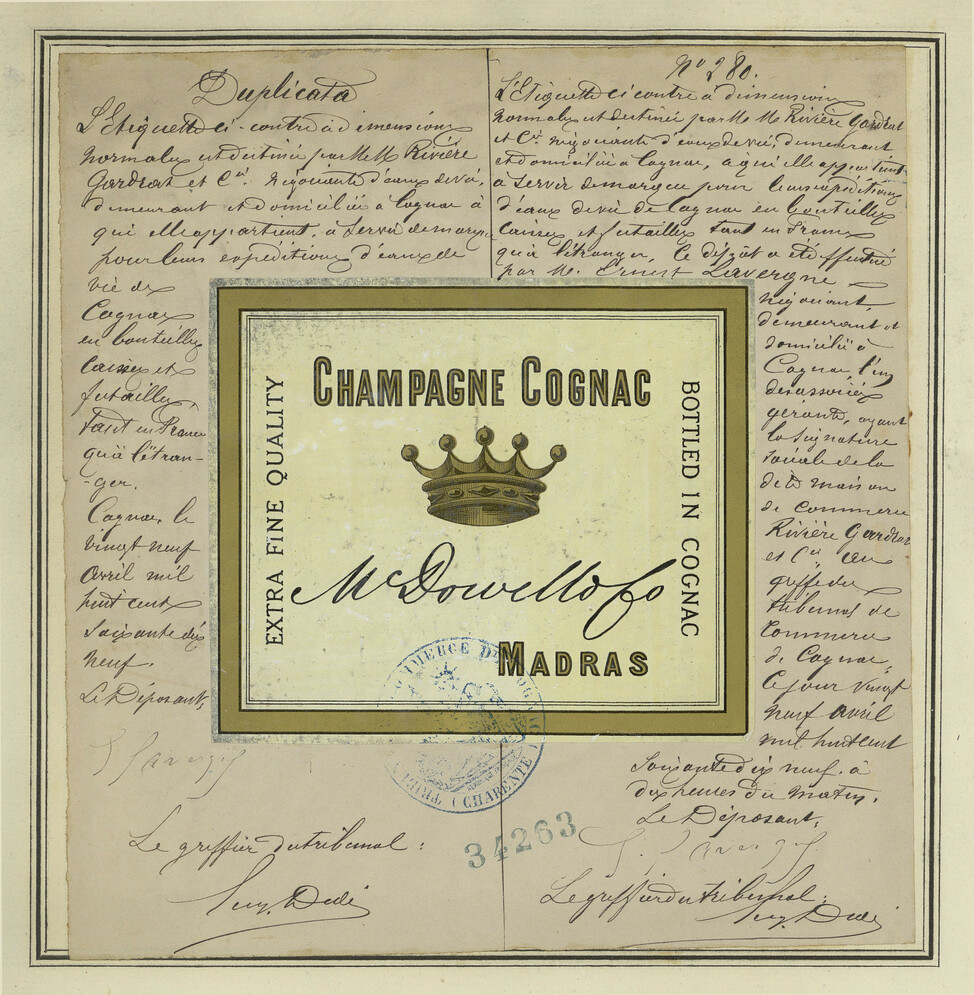 Duplicata
L'Etiquette ci-contre à dimensions
normales est destinée par MM Rivière
Gardrat et Cie. Négociants d'eaux de vie,
demeurant et domiciliés à Cognac à
qui elle appartient, à servir de marque
pour leurs expéditions d'eaux de
vie de
Cognac
en bouteilles
caisses et
futailles,
tant en France
qu'à l'étran-
-ger.
Cognac, le
vingt neuf
avril mil
huit cent
soixante dix
neuf.
Le Déposant,
Le greffier du tribunal :
No 280.
L'Etiquette ci contre à dimensions
normales est destinée par MM Rivière Gardrat
et Cie négociants d'eaux de vie, demeurant
et domiciliés à Cognac, à qui elle appartient
à servir de marque pour leurs expéditions
d'eaux de vie de Cognac en bouteilles
caisses et futailles tant en France
qu'à l'étranger, le dépôt a été effectué
par M. Ernest Lavergne
négociant,
demeurant et
domicilié à
Cognac, l'un
des associés
gérants, ayant
la signature
sociale de la
dite maison
de commerce
Rivière Gardrat
et Cie au
greffe du
tribunal de
Commerce
de Cognac,
le jour vingt
neuf avril
mil huit cent
soixante dix neuf à
dix heures du matin.
Le Déposant,
Le greffier du tribunal :
CHAMPAGNE COGNAC
EXTRA FINE QUALITY
BOTTLED IN COGNAC
McDowell & Co
MADRAS
COMMERCE DE COGNAC
(CHARENTE)
34263